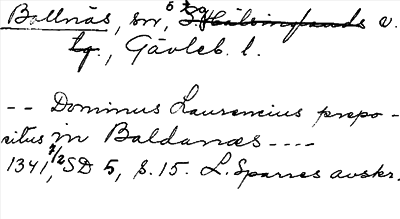 Bollnäs, sn, S. Hälsinglands v.
tg., Gävleb. l.
-- Dominus Laurencius prepo-
situs in Baldanæs ----
1341 7/2 SD 5, s. 15. L. Sparres avskr.